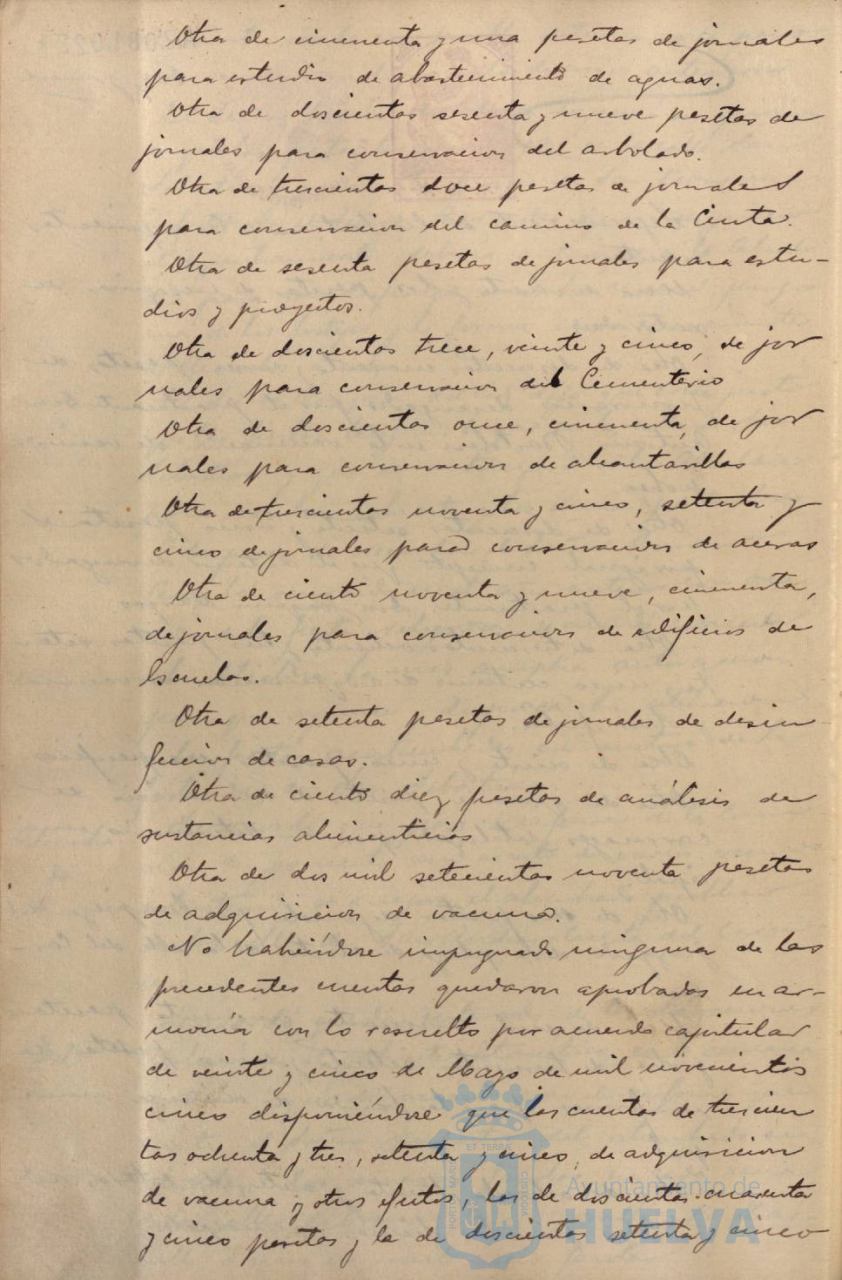 Otra de cincuenta y una pesetas de jornales
para estudio de abastecimiento de aguas.
Otra de doscientas sesenta y nueve pesetas de
jornales para conservacion del arbolado.
Otra de trescientas doce pesetas de jornales
para conservacion del camino de la Cinta.
Otra de sesenta pesetas de jornales para estu-
dios y proyectos.
Otra de doscientas trece, veinte y cinco, de jor
nales para conservacion del Cementerio
Otra de doscientas once, cincuenta, de jor
nales para conservacion de alcantarillas
Otra de trescientas noventa y cinco, setenta y
cinco de jornales para conservacion de aceras
Otra de ciento noventa y nueve, cincuenta,
de jornales para conservacion de edificios de
Escuelas.
Otra de setenta pesetas de jornales de desin
feccion de casas.
Otra de ciento diez pesetas de análisis de
sustancias alimenticias
Otra de dos mil setecientas noventa pesetas
de adquisicion de vacuna.
No habiéndose impugnado ninguna de las
precedentes cuentas quedaron aprobadas en ar-
monía con lo resuelto por acuerdo capitular
de veinte y cinco de Mayo de mil novecientos
cinco disponiéndose que las cuentas de trescien
tas ochenta y tres, setenta y cinco, de adquisicion
de vacuna y otros efectos, las de doscientas cuarenta
y cinco pesetas y la de doscientas setenta y cinco
Ayuntamiento de
HUELVA